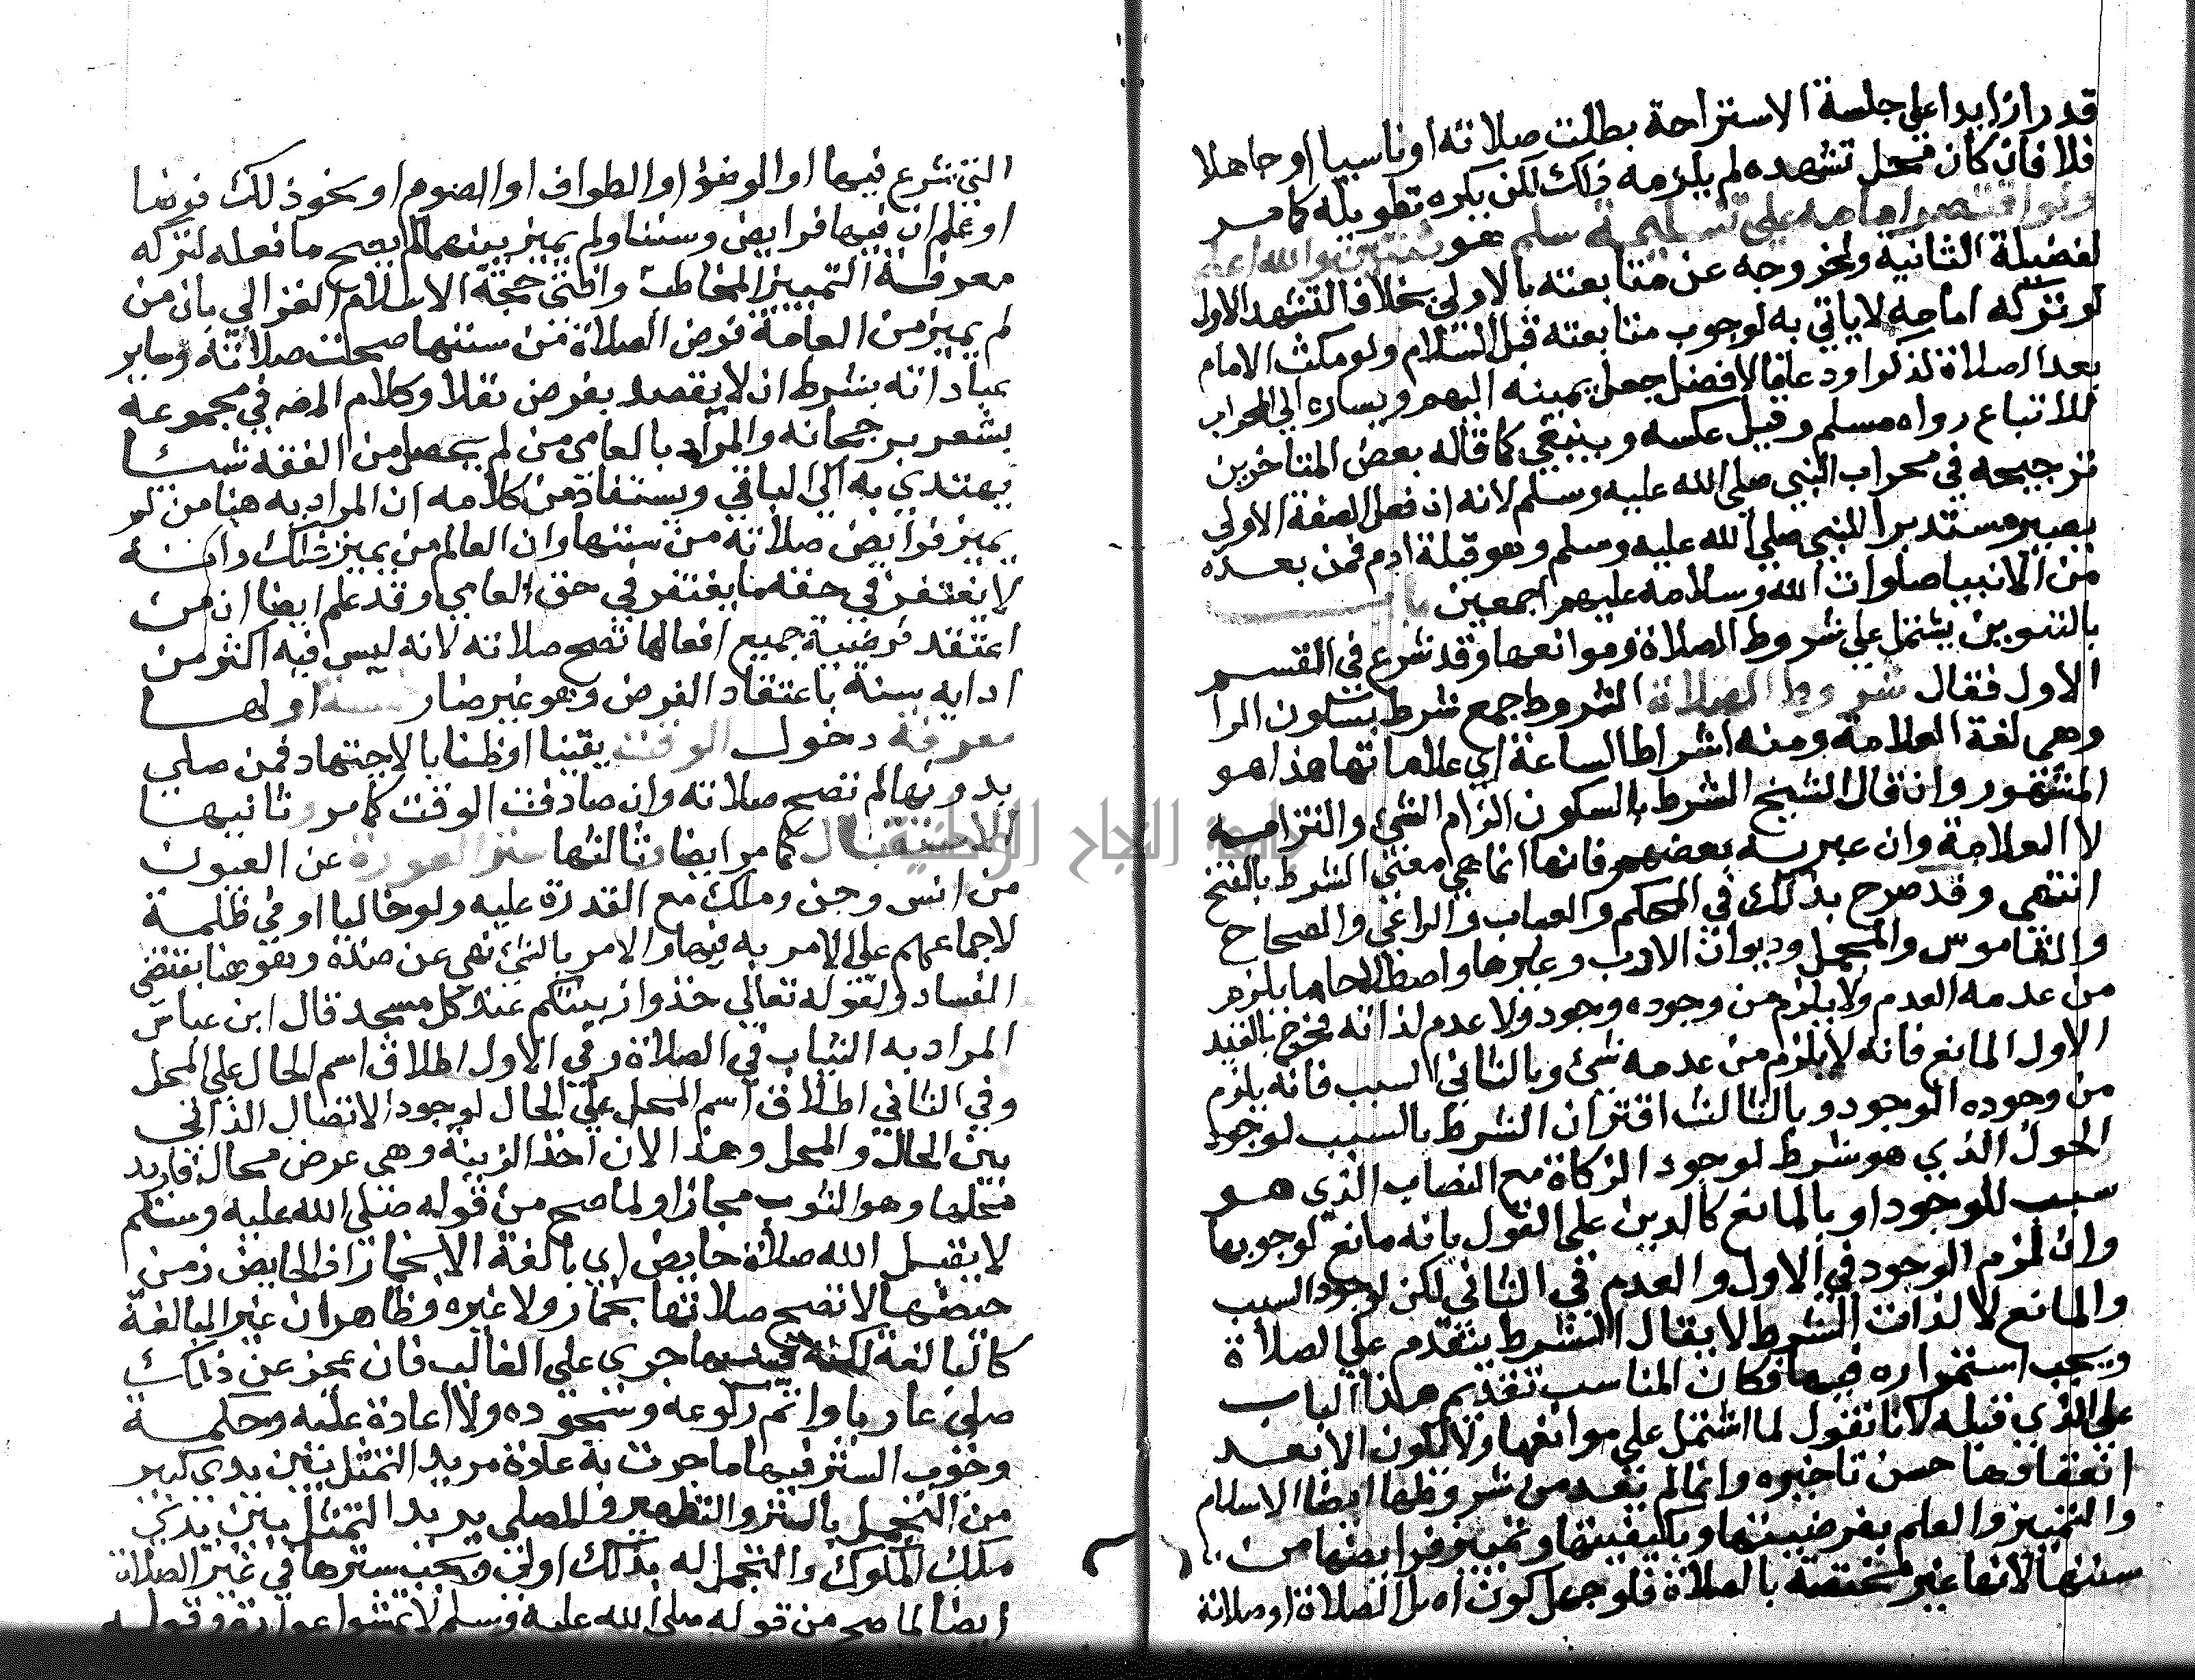 قدرا زايدا على جلسة الاستراحة بطلت صلاته او ناسيا او جاهلا
فلا فان كان محل تشهده لم يلزمه ذلك لكن يكره تطويله كما مر
ولو اقتصر امامه على تسليمة سلم هو ثنتين والله اعلم
لفضيلة الثانية ولخروجه عن متابعته بالاولى بخلاف التشهد الاول
لو تركه امامه لا ياتي به لوجوب متابعته قبل السلام ولو مكث الامام
بعد الصلاة لذكر او دعا فالافضل جعل يمينه اليهم ويساره الى المحراب
للاتباع رواه مسلم وقيل عكسه وينبغي كما قاله بعض المتاخرين
ترجيحه في محراب النبي صلى الله عليه وسلم لانه ان فعل الصفة الاولى
يصير مستدبرا للنبي صلى الله عليه وسلم وهو قبلة ادم فمن بعده
من الانبيا صلوات الله وسلامه عليهم اجمعين باب
بالتنوين يشتمل على شروط الصلاة وموانعها وقد شرع في القسم
الاول فقال شروط الصلاة الشروط جمع شرط بسكون الرا
وهي لغة العلامة ومنه اشراط الساعة اي علاماتها هذا هو
المشهور وان قال الشيخ الشرط بالسكون الزام الشئ والتزامه
لا العلامة وان عبر به بعضهم فانها انما هي معنى الشرط بالفتح
انتهى وقد صرح بذلك في المحكم والعباب والراعي والصحاح
والقاموس والمجمل وديوان الادب وغيرها واصطلاحا ما يلزم
من عدمه العدم ولا يلزم من وجوده وجود ولا عدم لذاته فخرج بالقيد
الاول المانع فانه لا يلزم من عدمه شئ وبالثاني السبب فانه يلزم
من وجوده الوجود وبالثالث اقتران الشرط بالسبب لوجود
الحول الذي هو شرط لوجود الزكاة مع النصاب الذي هو
سبب للوجود او بالمانع كالدين على القول بانه مانع لوجوبها
وان لزم الوجود في الاول والعدم في الثاني لكن لوجود السبب
والمانع لا لذات الشرط لا يقال الشرط يتقدم على الصلاة
ويجب استمراره فيها فكان المناسب تقديم هذا الباب
على الذي قبله لانا نقول لما اشتمل على موانعها ولا تكون الا بعد
انعقادها حسن تاخيره وانما لم تعد من شروطها ايضا الاسلام
والتمييز والعلم بفرضيتها وبكيفيتها وتمييز فرايضها من
سننها لانها غير مختصة بالصلاة فلو جهل كون اصل الصلاة او صلاته
التي شرع فيها او الوضوء او الطواف او الصوم او نحو ذلك فرضا
او علم ان فيها فرايض وسننا ولم يميز بينهما لم يصح ما فعله لتركه
معرفة التمييز المخاطب وافتى حجة الاسلام الغزالي بان من
لم يميز من العامة فرض الصلاة من سننها صحت صلاته وساير
عباداته بشرط ان لا يقصد بفرض نفلا وكلام المص في مجموعه
يشعر برجحانه والمراد بالعامي من لم يحصل من الفقه شيئا
يهتدي به الى الباقي ويستفاد من كلامه ان المراد به هنا من لم
يميز فرايض صلاته من سننها وان العالم من يميز ذلك وانه
لا يغتفر في حقه ما يغتفر في حق العامي وقد علم ايضا ان من
اعتقد فرضية جميع افعالها تصح صلاته لانه ليس فيه اكثر من
ادايه سنة باعتقاد الفرض وهو غير ضار خمسة اولها
معرفة دخول الوقت يقينا او ظنا بالاجتهاد فمن صلى
بدونها لم تصح صلاته وان صادفت الوقت كما مر وثانيها
الاستقبال كما مر ايضا وثالثها ستر العورة عن العيون
من انس وجن وملك مع القدرة عليه ولو خاليا او في ظلمة
لاجماعهم على الامر به فيها والامر بالشئ نهي عن ضده وهو هنا يقتضي
الفساد ولقوله تعالى خذوا زينتكم عند كل مسجد قال ابن عباس
المراد به الثياب في الصلاة وفي الاول اطلاق اسم الحال على المحل
وفي الثاني اطلاق اسم المحل على الحال لوجود الاتصال الذاتي
بين الحال والمحل وهذا لان اخذ الزينة وهي عرض محال فاريد
محلها وهو الثوب مجازا ولما صح من قوله صلى الله عليه وسلم
لا يقبل الله صلاة حايض اي بالغة الا بخمار اذ الحايض زمن
حيضها لا تصح صلاتها بخمار ولا غيره وظاهر ان غير البالغة
كالبالغة لكنه قيد بها جرى على الغالب فان عجز عن ذلك
صلى عاريا واتم ركوعه وسجوده ولا اعادة عليه وحكمة
وجوب الستر فيها ما جرت به عادة مريد التمثل بين يدي كبير
من التجمل بالستر والتطهير والمصلي يريد التمثل بين يدي
ملك الملوك والتجمل له بذلك اولى ويجب سترها في غير الصلاة
ايضا لما صح من قوله صلى الله عليه وسلم لا تمشوا عراة وقوله